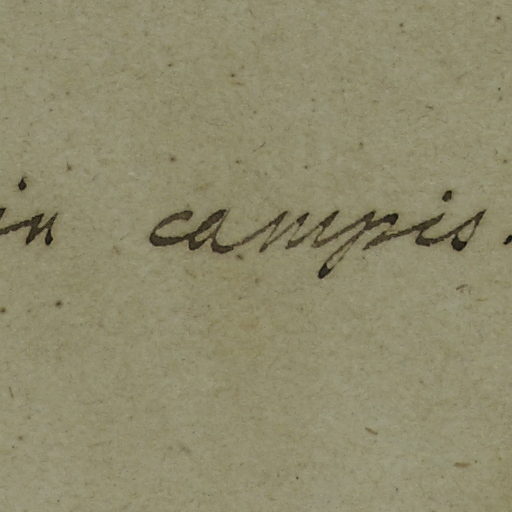 in campis.